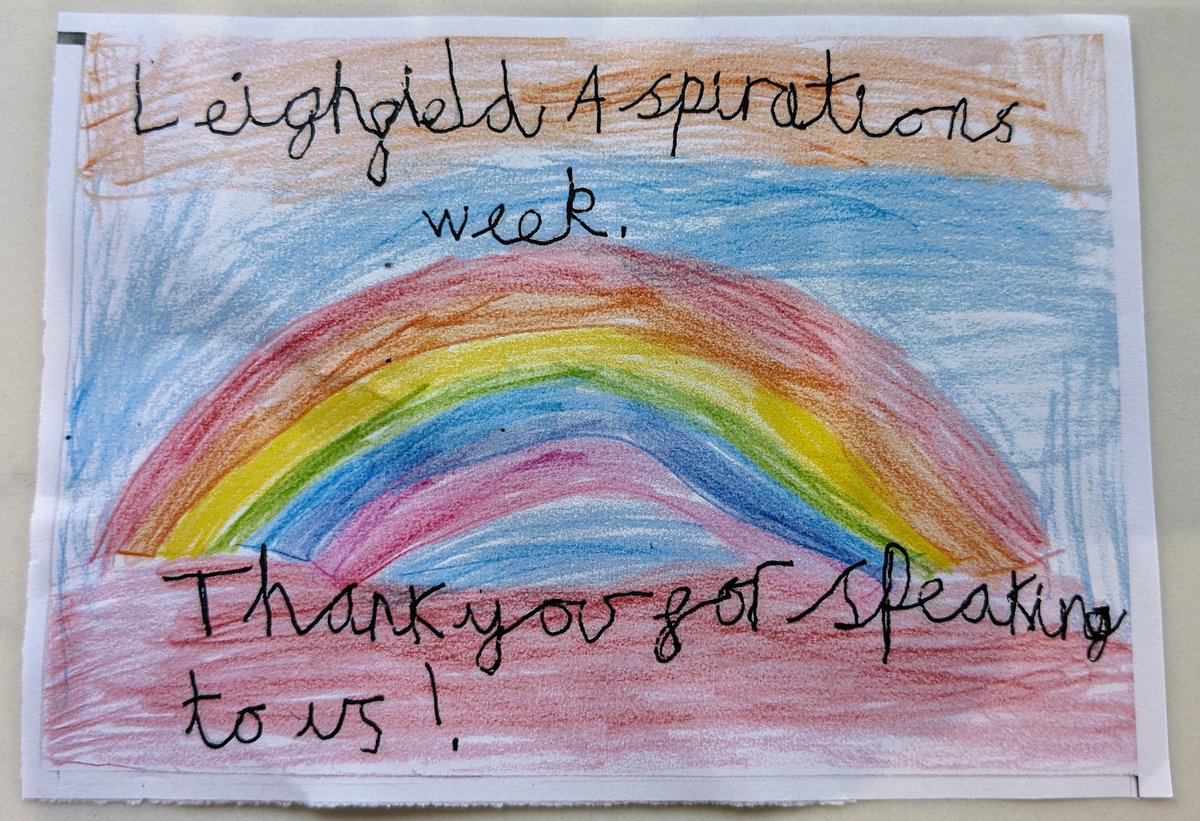 Leighfield Aspirations
week.
Thank you for speaking
to us!